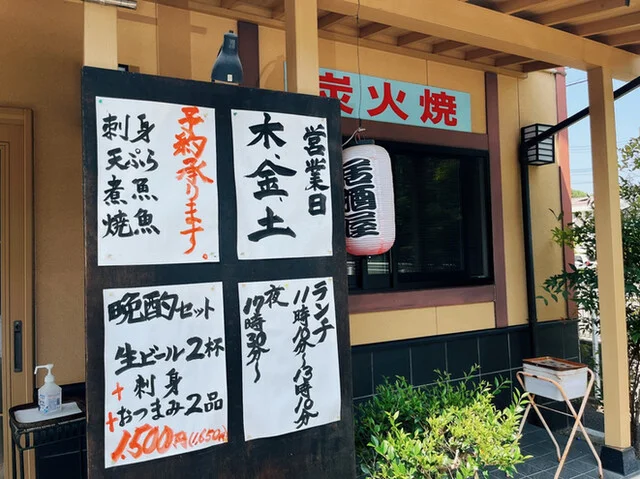 炭火焼
居酒屋
営業日
木、金、土
予約承ります。
刺身
天ぷら
煮魚
焼魚
ランチ
11時10分〜13時10分
夜
17時30分〜
晩酌セット
生ビール2杯
+刺身
+おつまみ2品
1,500円(1,650円)